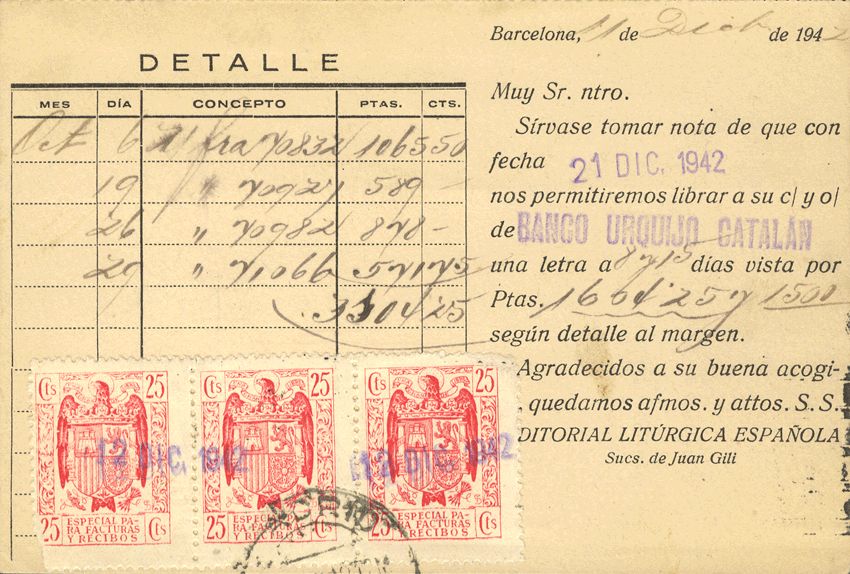 Barcelona, 11 de Dicb de 1942
DETALLE
MES DÍA CONCEPTO PTAS. CTS.
Oct 6 fra 70832 1065 50
19 " 70921 589 -
26 " 70982 878 -
29 " 71066 571 75
3104'25
Muy Sr. ntro.
Sírvase tomar nota de que con
fecha 21 DIC. 1942
nos permitiremos librar a su c/ y o/
de BANCO URQUIJO CATALÁN
una letra a 8 y 15 días vista por
Ptas. 1604'25 y 1500
según detalle al margen.
Agradecidos a su buena acogi-
, quedamos afmos. y attos. S. S.
DITORIAL LITÚRGICA ESPAÑOLA
Sucs. de Juan Gili
Cts 25 Cts 25 Cts 25
12 DIC. 1942 12 DIC. 1942
25 Cts 25 Cts 25 Cts
ESPECIAL PA- ESPECIAL PA- ESPECIAL PA-
RA FACTURAS RA FACTURAS RA FACTURAS
Y RECIBOS Y RECIBOS Y RECIBOS